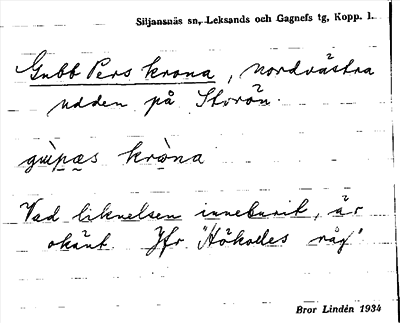 Siljansnäs sn, Leksands och Gagnefs tg, Kopp. l.
Gubb Pers krona, nordvästra
udden på Storön.
gùpæs kròna
Vad liknelsen inneburit, är
okänt. Jfr "Håkodes råg"
Bror Lindén 1934